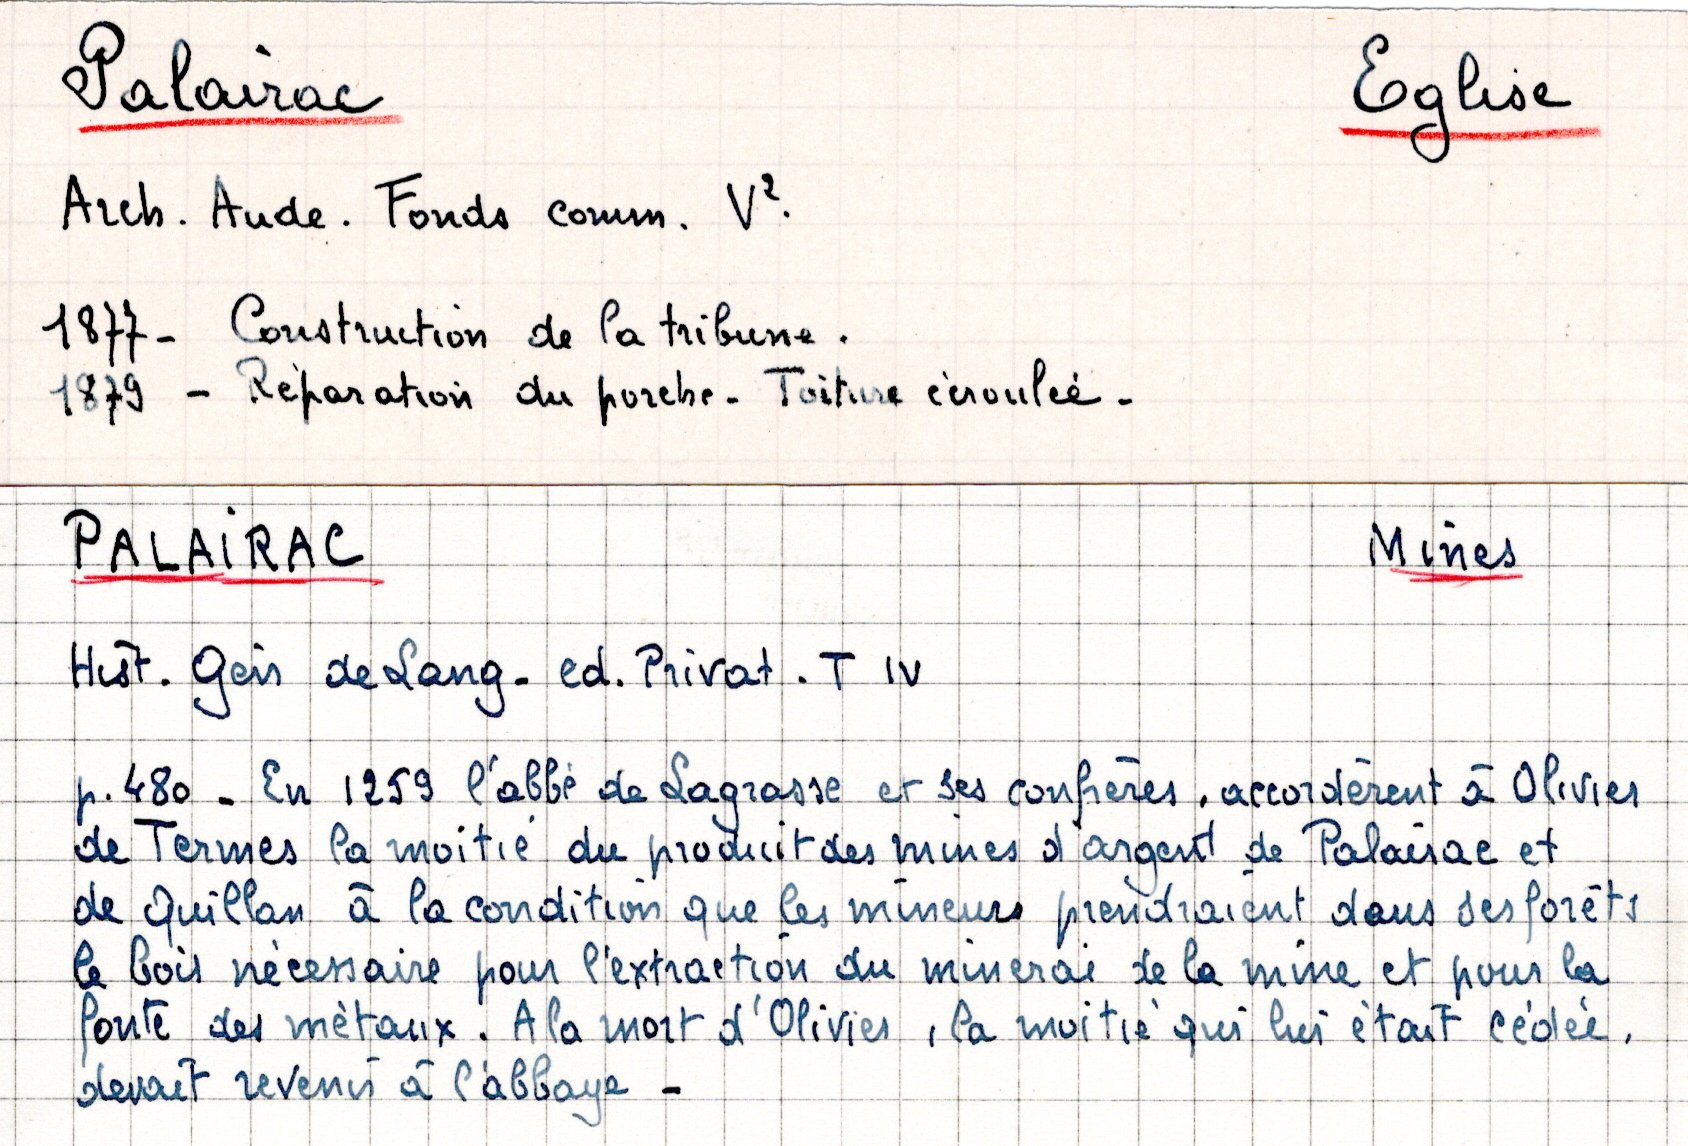 Palairac Eglise
Arch. Aude. Fonds comm. V².
1877 - Construction de la tribune.
1879 - Réparation du porche - Toiture écroulée -
PALAIRAC Mines
Hist. Gén de Lang - ed. Privat. T IV
p. 480 - En 1259 l'abbé de Lagrasse et ses confrères, accordèrent à Olivier
de Termes la moitié du produit des mines d'argent de Palairac et
de Quillan à la condition que les mineurs prendraient dans ses forêts
le bois nécessaire pour l'extraction du minerai de la mine et pour la
fonte des métaux. A la mort d'Olivier, la moitié qui lui était cédée,
devait revenir à l'abbaye -